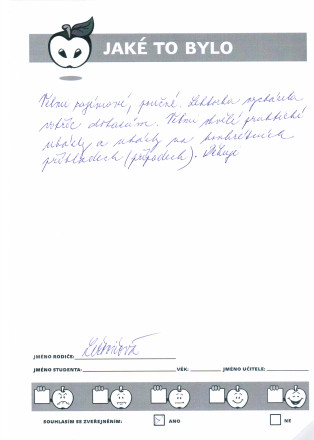 JAKÉ TO BYLO
Velmi zajímavé, poučné. Lektorka vycházela
vstříc dotazům. Velmi skvělé praktické
ukázky a ukázky na konkrétních
příkladech (případech). Děkuji
JMÉNO RODIČE:
JMÉNO STUDENTA: VĚK: JMÉNO UČITELE:
SOUHLASÍM SE ZVEŘEJNĚNÍM: ANO NE